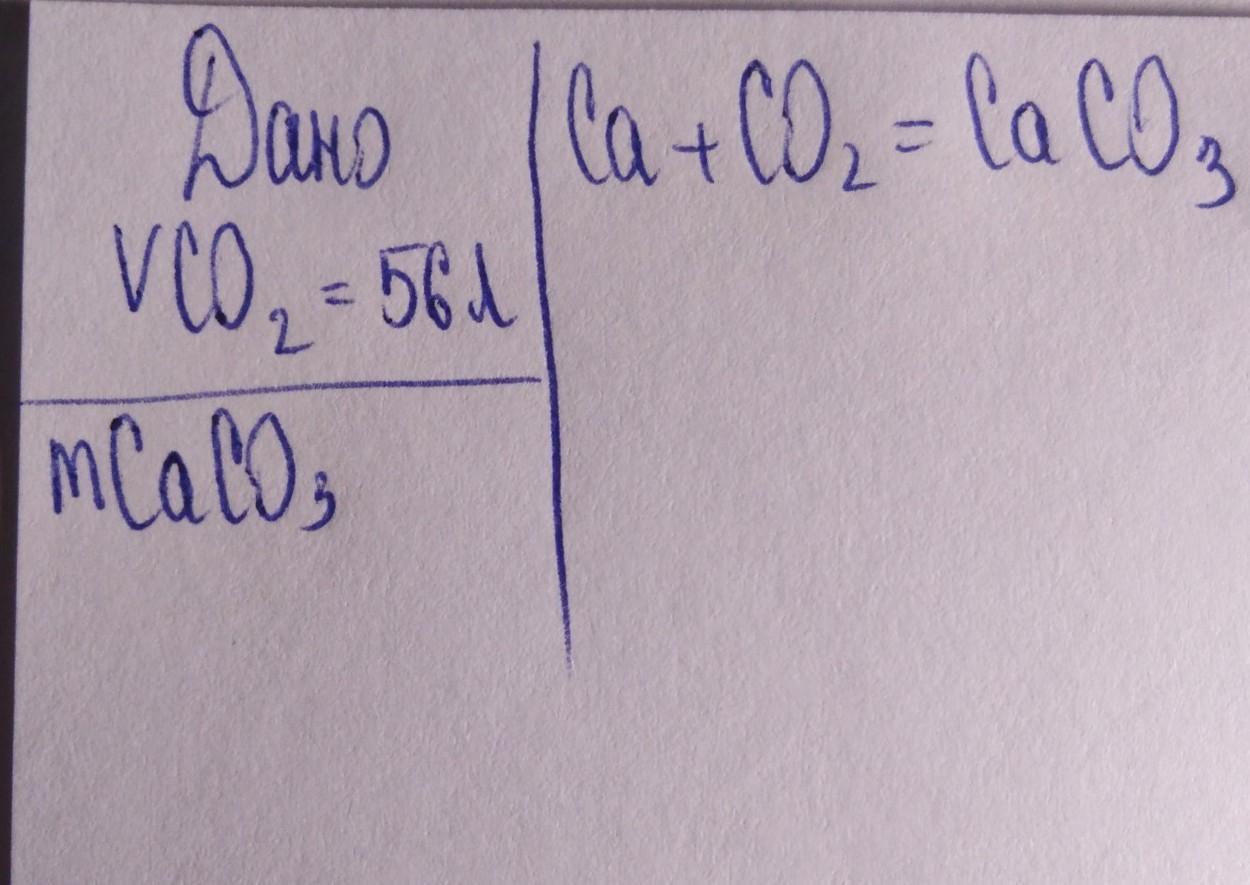 Дано
VCO₂ = 56л
mCaCO₃
Ca + CO₂ = CaCO₃